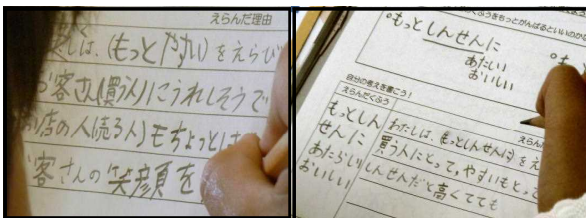 えらんだ理由
しは、(もっとやすい)をえらび
お客さん(買う人)にうれしそうで
お店の人(売る人)もちょっとは
客さんの笑顔を
くふうをもっとがんばるといいのか
○もっとしんせんに
あたらしい
おいしい
○も
自分の考えを書こう!
えらんだくふう
えらん
もっとしんせんに
あたらしい
おいしい
わたしは、(もっとしんせんに)をえ
買う人にとって、やすいもとって
しんせんだと高くても